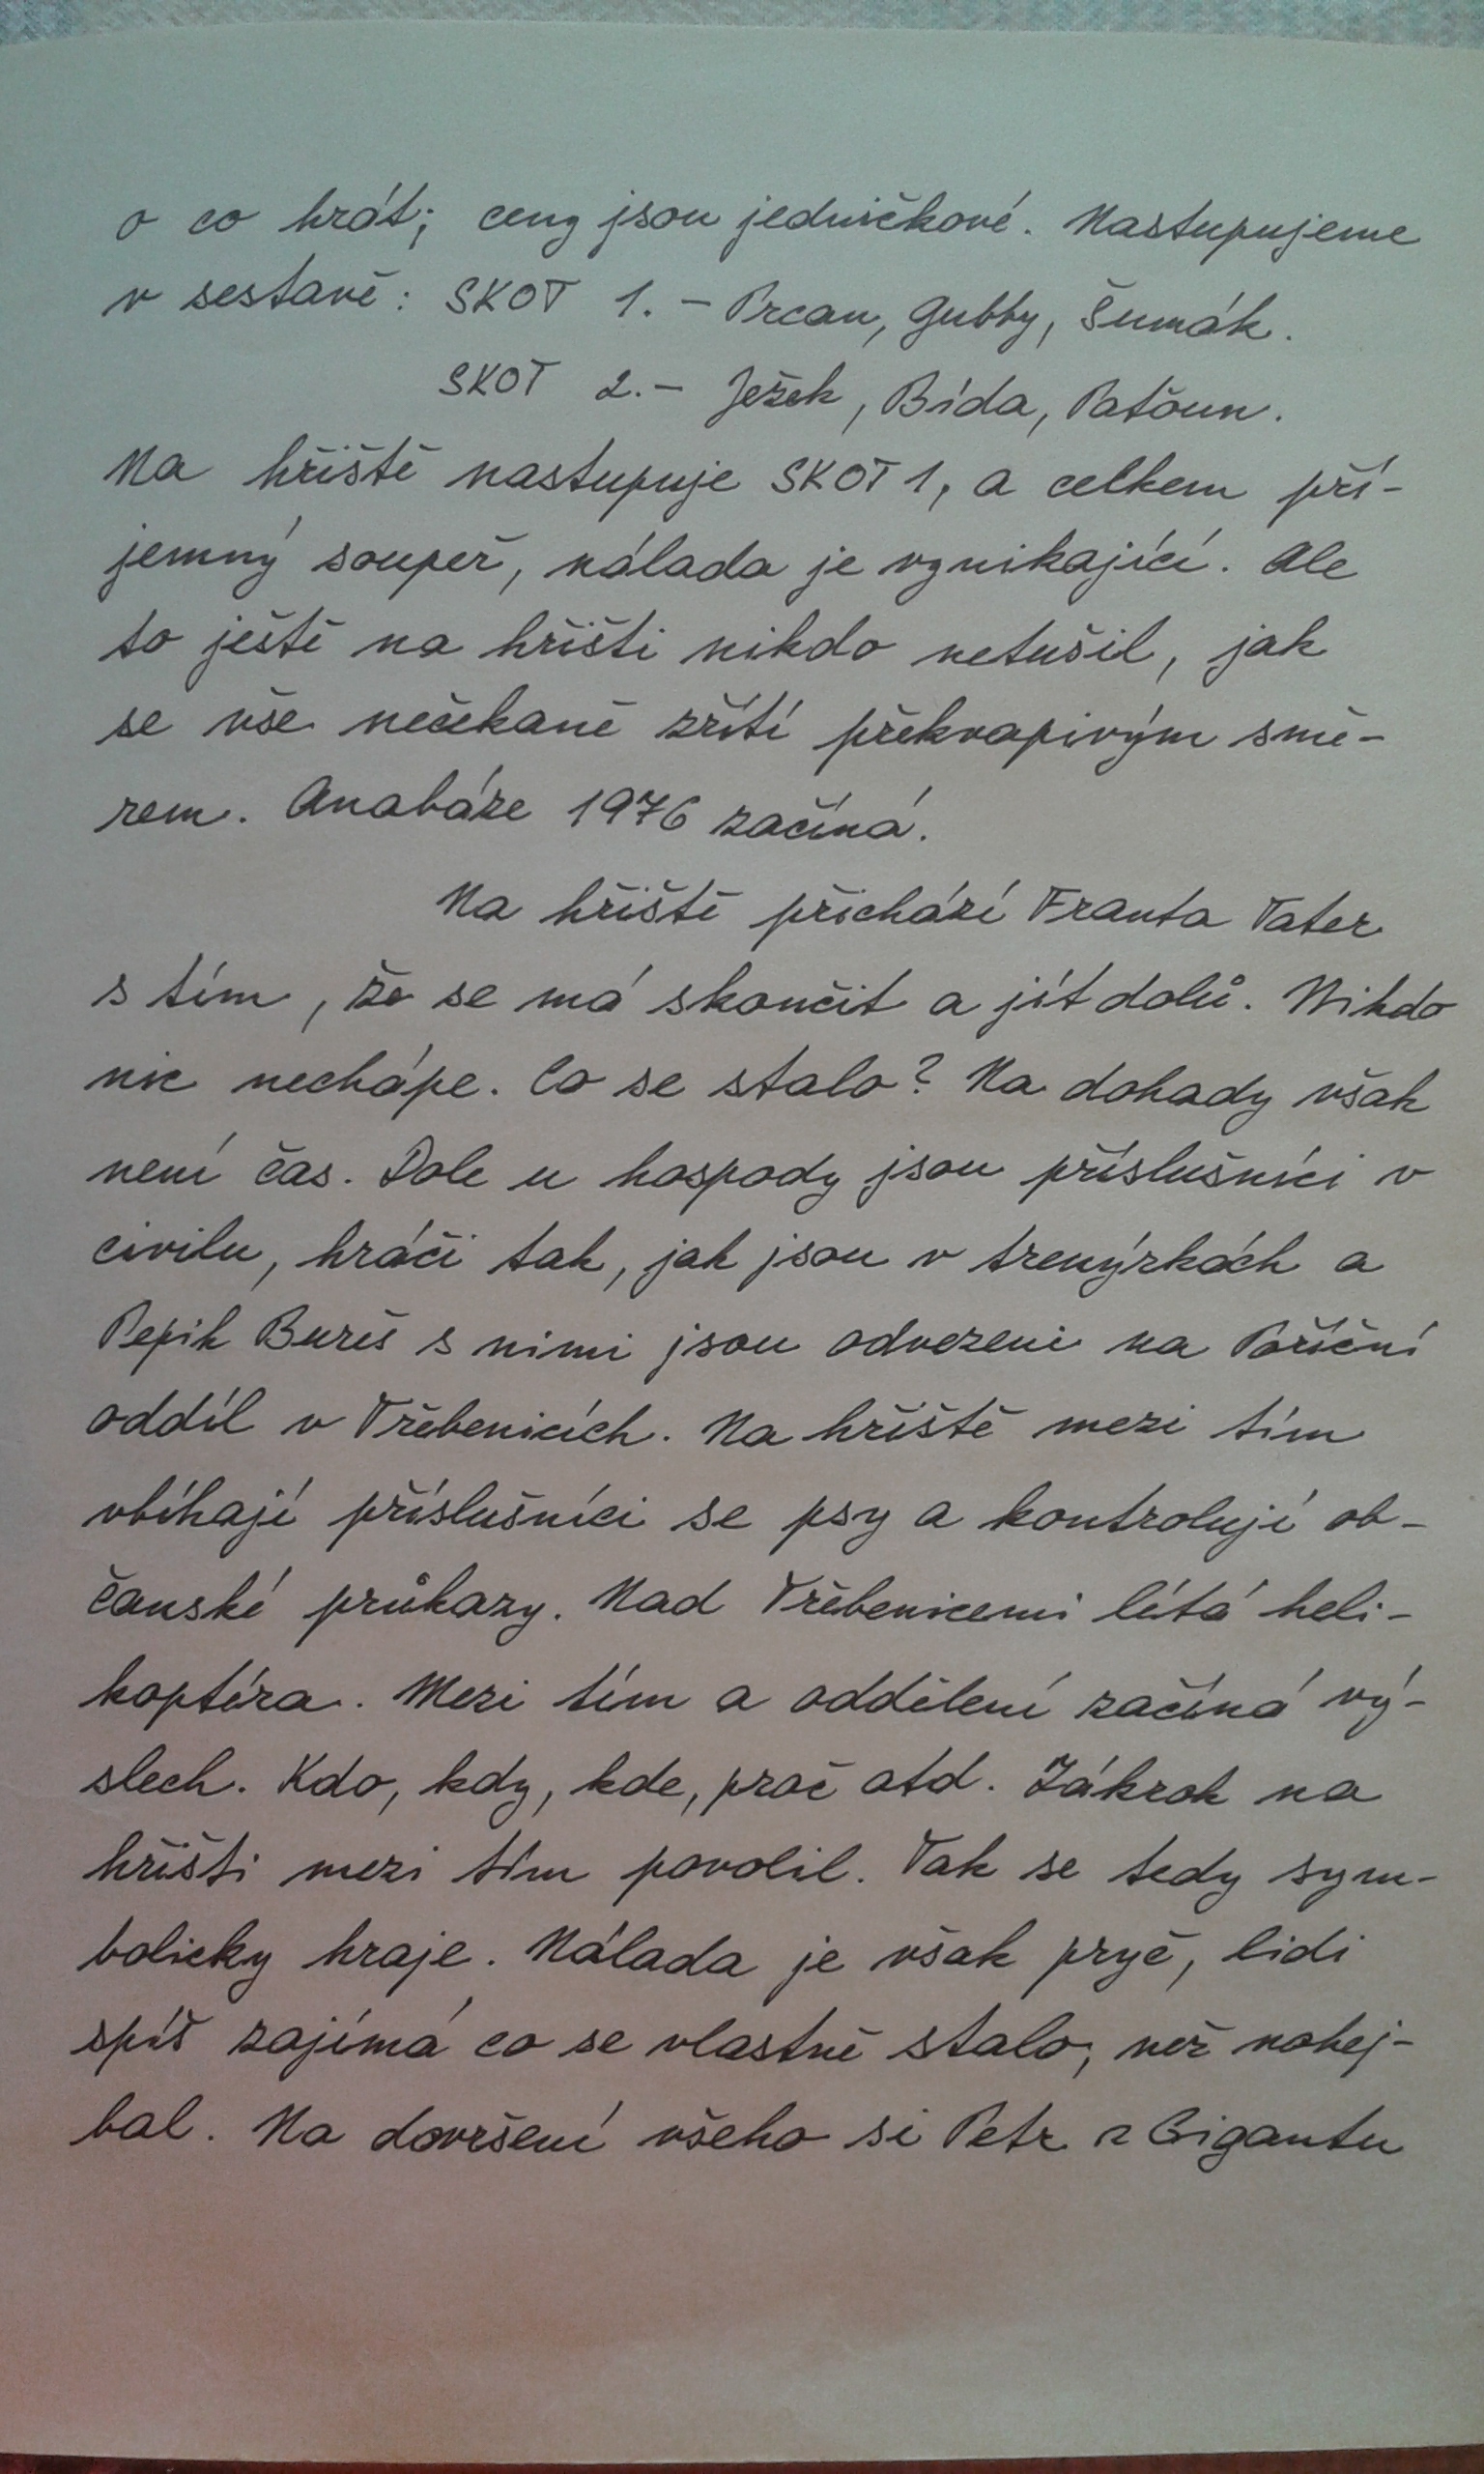 o co hrát; ceny jsou jedničkové. Nastupujeme
v sestavě: SKOT 1. – Prcan, Gubby, Šumák.
SKOT 2. – Ježek, Bída, Patoun.
Na hřiště nastupuje SKOT 1, a celkem pří-
jemný soupeř, nálada je vynikající. Ale
to ještě na hřišti nikdo netušil, jak
se vše nečekaně zřítí překvapivým smě-
rem. Anabáze 1976 začíná.
Na hřiště přichází Franta Tater
s tím, že se má skončit a jít dolů. Nikdo
nic nechápe. Co se stalo? Na dohady však
není čas. Dole u hospody jsou příslušníci v
civilu, hráči tak, jak jsou v trenýrkách a
Pepík Bureš s nimi jsou odvezeni na Poříční
oddíl v Třebenicích. Na hřiště mezi tím
vbíhají příslušníci se psy a kontrolují ob-
čanské průkazy. Nad Třebenicemi létá heli-
koptéra. Mezi tím a oddělení začíná vý-
slech. Kdo, kdy, kde, proč atd. Zákrok na
hřišti mezi tím povolil. Tak se tedy sym-
bolicky hraje. Nálada je však pryč, lidi
spíš zajímá co se vlastně stalo, než nohej-
bal. Na dovršení všeho si Petr z Gigantu